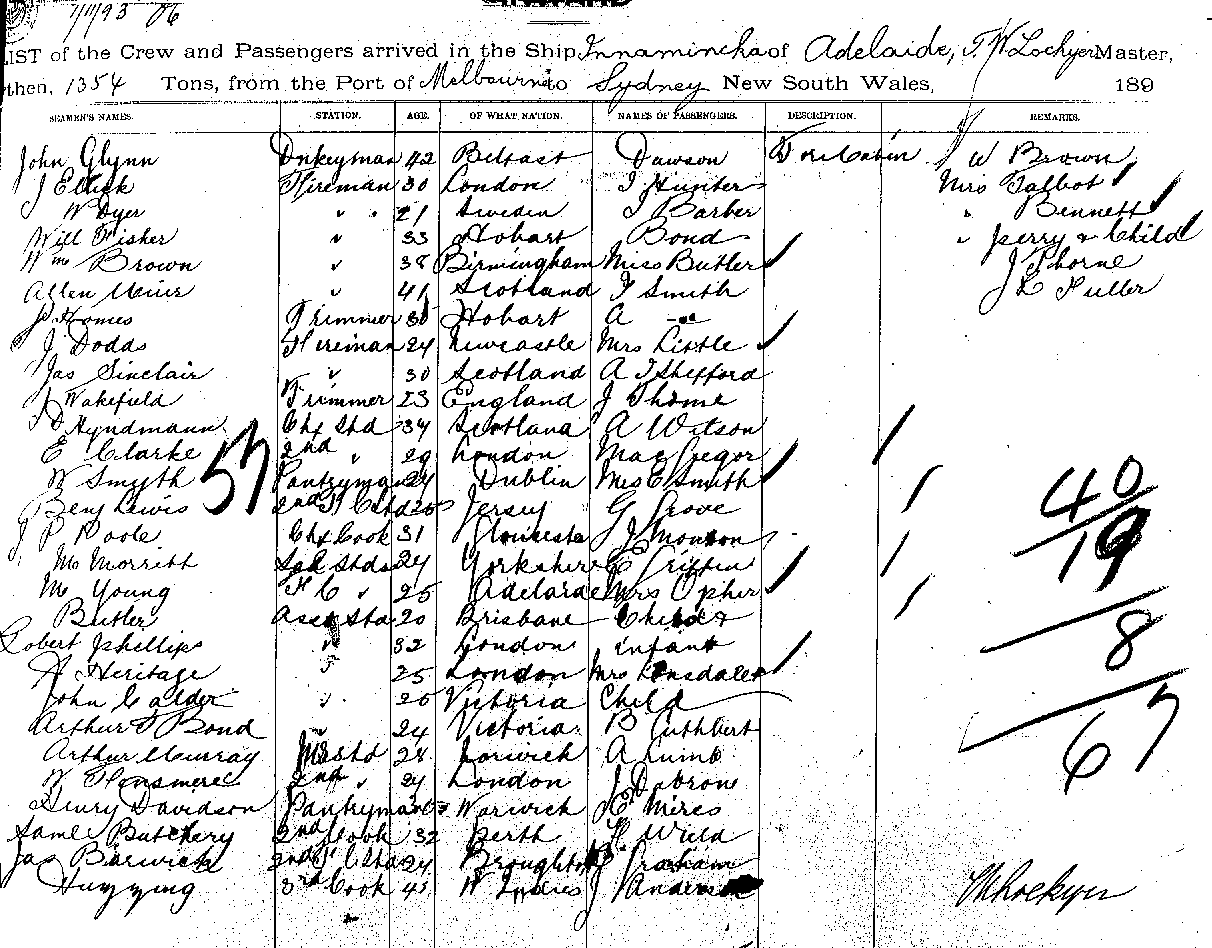 7/11/93 06
LIST of the Crew and Passengers arrived in the Ship Innamincka of Adelaide, T. W Lockyer Master,
then, 1354 Tons, from the Port of Melbourne to Sydney New South Wales, 189
SEAMEN'S NAMES. STATION. AGE. OF WHAT NATION. NAMES OF PASSENGERS. DESCRIPTION. REMARKS.
John Glynn Dnkeyman 42 Belfast Dawson Fore Cabin W Brown
J Fireman 30 London J Hunter Mrs Talbot
W Dyer " 21 Sweden J Barber " Bennett
Will Fisher " 33 Hobart Bond " Perry & Child
Wm Brown " 38 Birmingham Miss Butler J Thorne
Allen Muir " 41 Scotland J Smith J L Fuller
J Homes Trimmer Hobart A
J Dodds Fireman 24 Newcastle Mrs Little
Jas Sinclair " 30 Scotland A Shefford
J Wakefield Trimmer 23 England J Thome
D Hyndmann Chf Std 34 Scotland A Watson
E Clarke 2nd " 29 London MacGregor
W Smyth Pantryman 24 Dublin Mrs E Smith
57
Benj Lewis 2nd Jersey G Grove
J P Poole Chf Cook 31 Gloucester J
40
M Morritt Stds 24 Yorkshire E Griffin
19
M Young F C " 25 Adelaide Mrs Opher
Butler Asst Std 20 Brisbane Child &
Robert Jphillips " 32 London infant
8
A Heritage " 25 London Mrs Lonsdale
John Calder " 26 Victoria Child
Arthur J Bond " 24 Victoria B Cuthbert
Arthur Murray Std 28 Norwich A Lumb
67
W 2nd " 24 London J
Henry Davidson Pantryman Warwick Mires
Saml Butchery 2nd Cook 32 Perth Wild
Jas Barwick 2nd Std 24 Broughton Graham
3rd Cook W Indies J
T W Lockyer